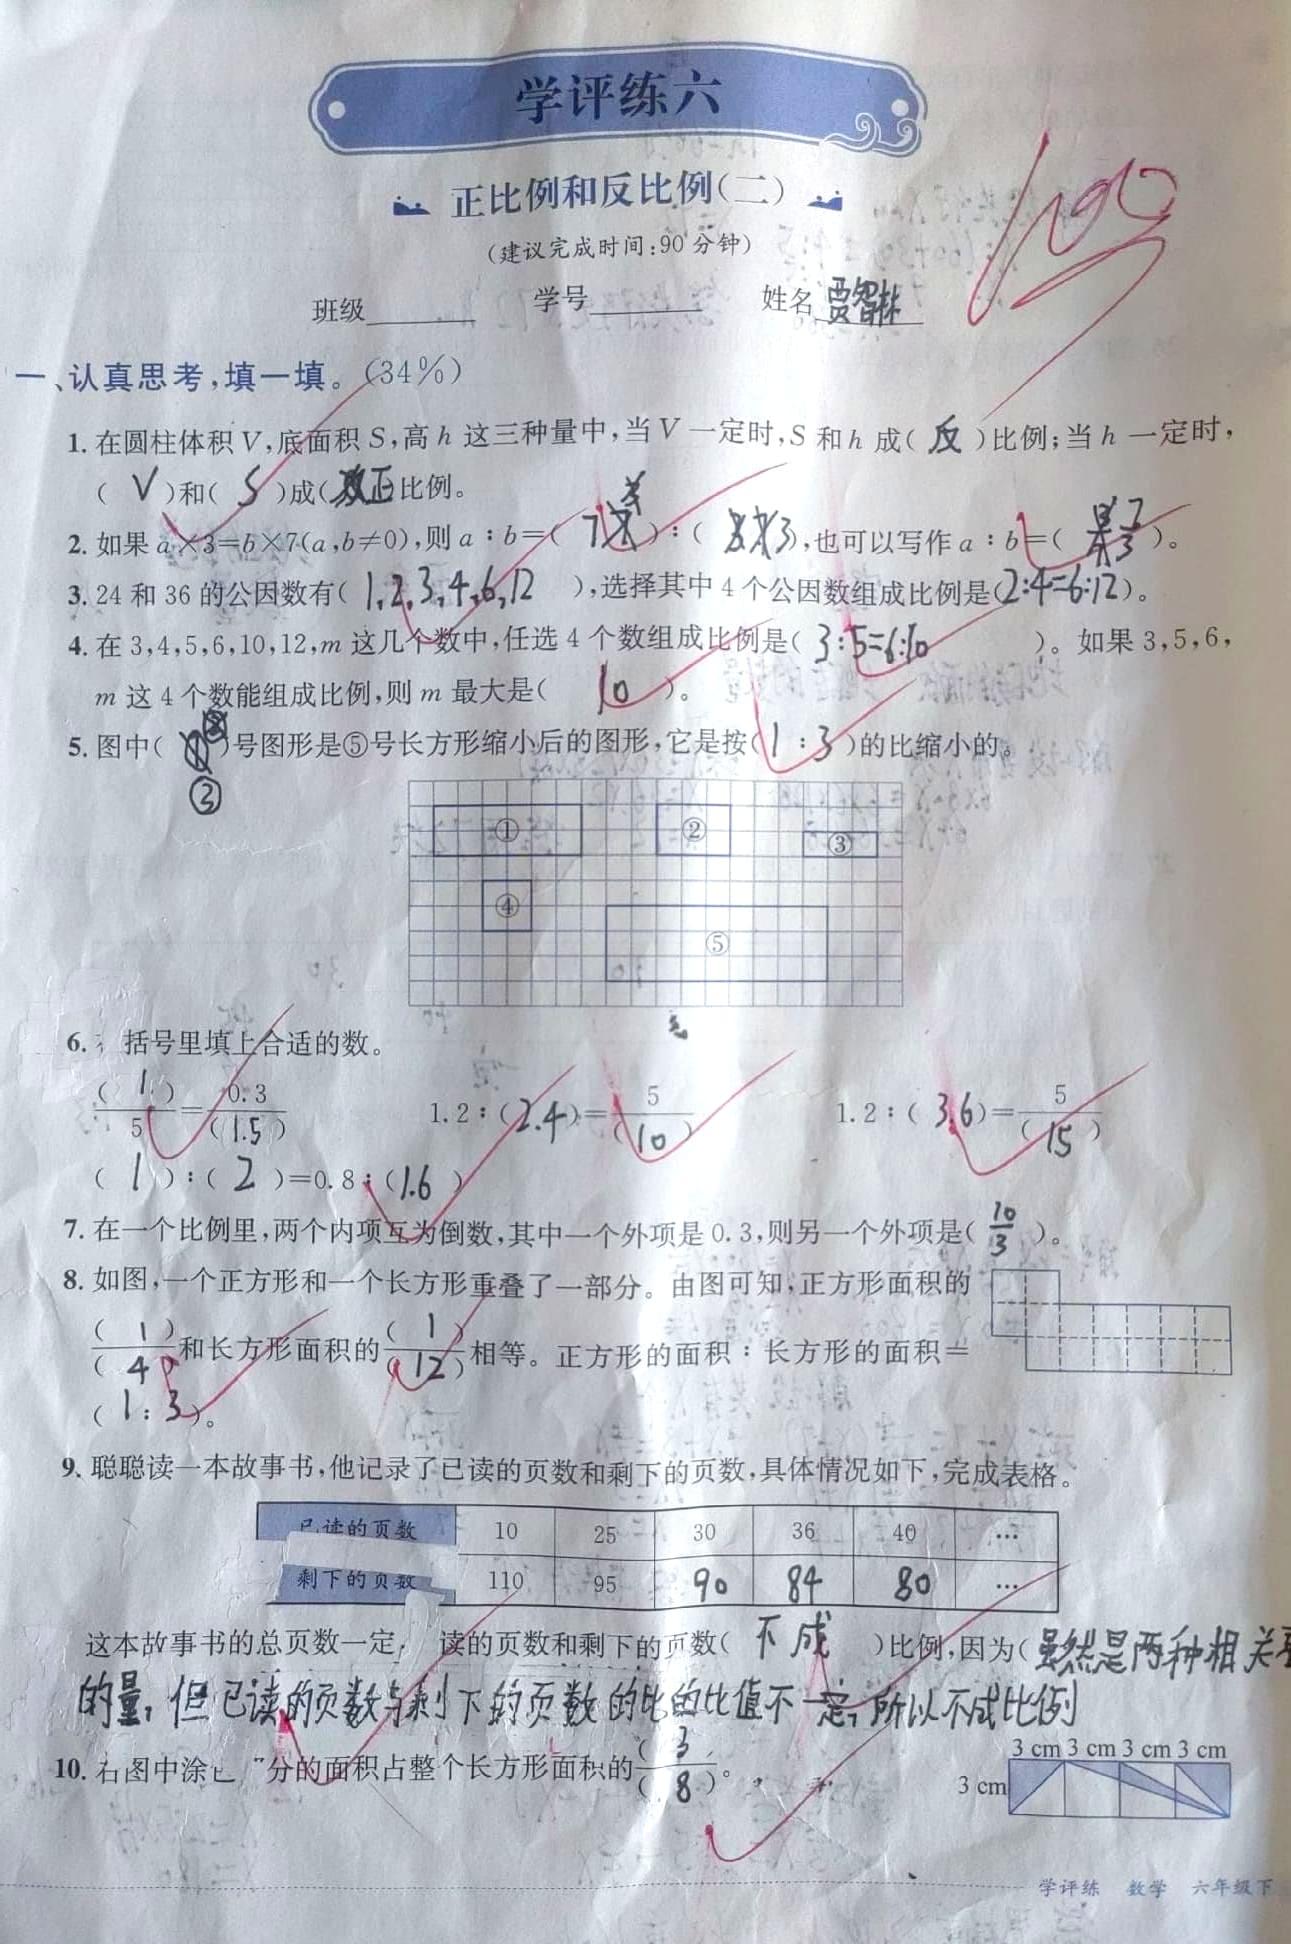 学评练六
正比例和反比例(二)
(建议完成时间:90分钟)
班级 学号 姓名 贾智林
100
一、认真思考,填一填。(34%)
1. 在圆柱体积V,底面积S,高h这三种量中,当V一定时,S和h成(反)比例;当h一定时,
(V)和(S)成(正)比例。
2. 如果a×3=b×7(a,b≠0),则a:b=(7):(3),也可以写作a:b=(7/3)。
3. 24和36的公因数有(1,2,3,4,6,12),选择其中4个公因数组成比例是(2:4=6:12)。
4. 在3,4,5,6,10,12,m这几个数中,任选4个数组成比例是(3:5=6:10)。如果3,5,6,
m这4个数能组成比例,则m最大是(10)。
5. 图中( )号图形是⑤号长方形缩小后的图形,它是按(1:3)的比缩小的。
③
① ② ③
④ ⑤
6. 括号里填上合适的数。
(1)/5=0.3/(1.5) 1.2:(2.4)=5/(10) 1.2:(3.6)=5/(15)
(1):(2)=0.8:(1.6)
7. 在一个比例里,两个内项互为倒数,其中一个外项是0.3,则另一个外项是(10/3)。
8. 如图,一个正方形和一个长方形重叠了一部分。由图可知,正方形面积的
(1)/(4)和长方形面积的(1)/(12)相等。正方形的面积:长方形的面积=
(1:3)。
9. 聪聪读一本故事书,他记录了已读的页数和剩下的页数,具体情况如下,完成表格。
已读的页数 10 25 30 36 40 …
剩下的页数 110 95 90 84 80 …
这本故事书的总页数一定, 读的页数和剩下的页数(不成)比例,因为(虽然是两种相关
的量,但已读的页数与剩下的页数的比的比值不一定,所以不成比例
10. 右图中涂 分的面积占整个长方形面积的(3)/(8)。
3 cm 3 cm 3 cm 3 cm
3 cm
学评练 数学 六年级下